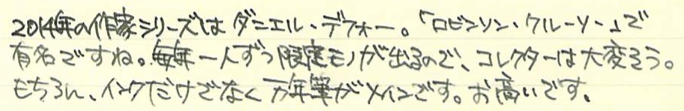 2014年の作家シリーズは ダニエル・デフォー。「ロビンソン・クルーソー」で
有名ですね。毎年一人ずつ限定モノが出るので、コレクターは大変そう。
もちろん、インクだけでなく 万年筆がメインです。お高いです。